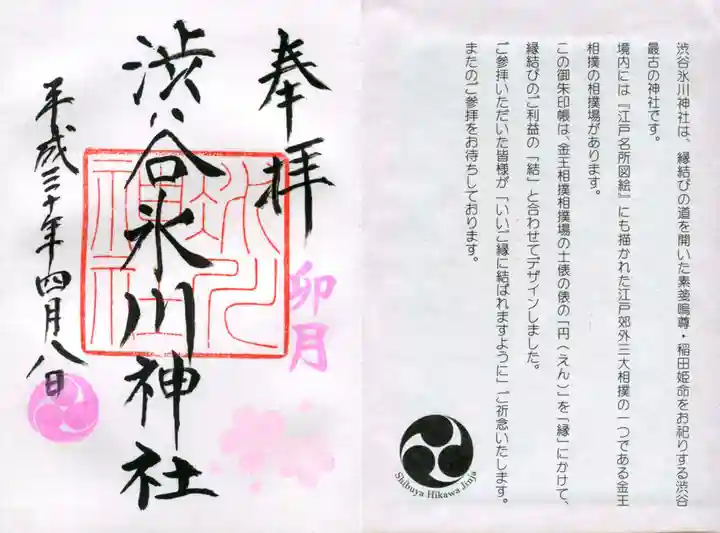 渋谷氷川神社は、縁結びの道を開いた素箋鳴尊・稲田姫命をお祀りする渋谷
最古の神社です。
境内には『江戸名所図絵』にも描かれた江戸郊外三大相撲の一つである金王
相撲の相撲場があります。
この御朱印帳は、金王相撲相撲場の土俵の俵の「円（えん）」を「縁」にかけて、
縁結びのご利益の「結」と合わせてデザインしました。
ご参拝いただいた皆様が「いいご縁に結ばれますように」ご祈念いたします。
またのご参拝をお待ちしております。
Shibuya Hikawa Jinja
奉拝
卯月
渋谷氷川神社
氷川神社
平成三十年四月八日